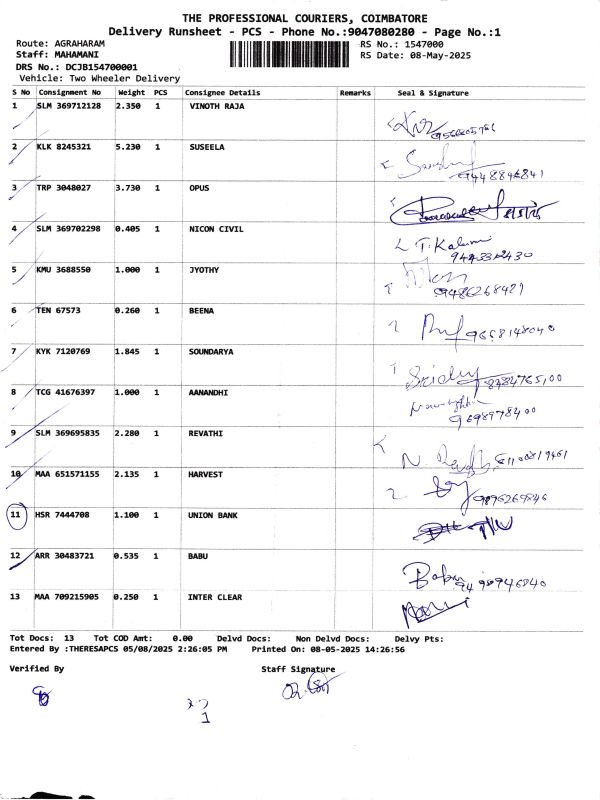 THE PROFESSIONAL COURIERS, COIMBATORE
Delivery Runsheet - PCS - Phone No.:9047080280 - Page No.:1
Route: AGRAHARAM RS No.: 1547000
Staff: MAHAMANI RS Date: 08-May-2025
DRS No.: DCJB154700001
Vehicle: Two Wheeler Delivery
S No Consignment No Weight PCS Consignee Details Remarks Seal & Signature
1 SLM 369712128 2.350 1 VINOTH RAJA
2 KLK 8245321 5.230 1 SUSEELA
3 TRP 3048027 3.730 1 OPUS
4 SLM 369702298 0.405 1 NICON CIVIL
5 KMU 3688550 1.000 1 JYOTHY
6 TEN 67573 0.260 1 BEENA
7 KYK 7120769 1.845 1 SOUNDARYA
8 TCG 41676397 1.000 1 AANANDHI
9 SLM 369695835 2.280 1 REVATHI
10 MAA 651571155 2.135 1 HARVEST
11 HSR 7444708 1.100 1 UNION BANK
12 ARR 30483721 0.535 1 BABU
Babu
13 MAA 709215905 0.250 1 INTER CLEAR
Tot Docs: 13 Tot COD Amt: 0.00 Delvd Docs: Non Delvd Docs: Delvy Pts:
Entered By :THERESAPCS 05/08/2025 2:26:05 PM Printed On: 08-05-2025 14:26:56
Verified By Staff Signature